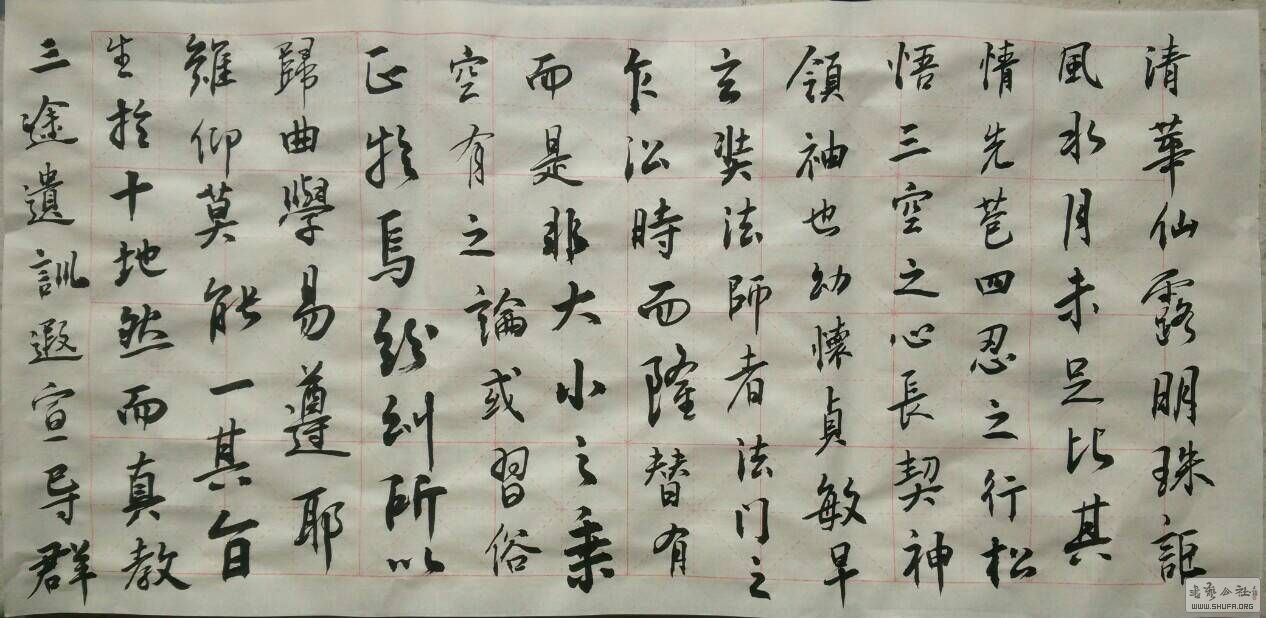 三途遺訓遐宣导群
生於十地然而真教
難仰莫能一其旨
歸曲學易遵耶
正於焉紛糾所以
空有之論或習俗
而是非大小之乗
乍沿時而隆替有
玄奘法師者法門之
領袖也幼懷貞敏早
悟三空之心長契神
情先苞四忍之行松
風水月未足比其
清華仙露明珠詎
WWW.SHUFA.ORG